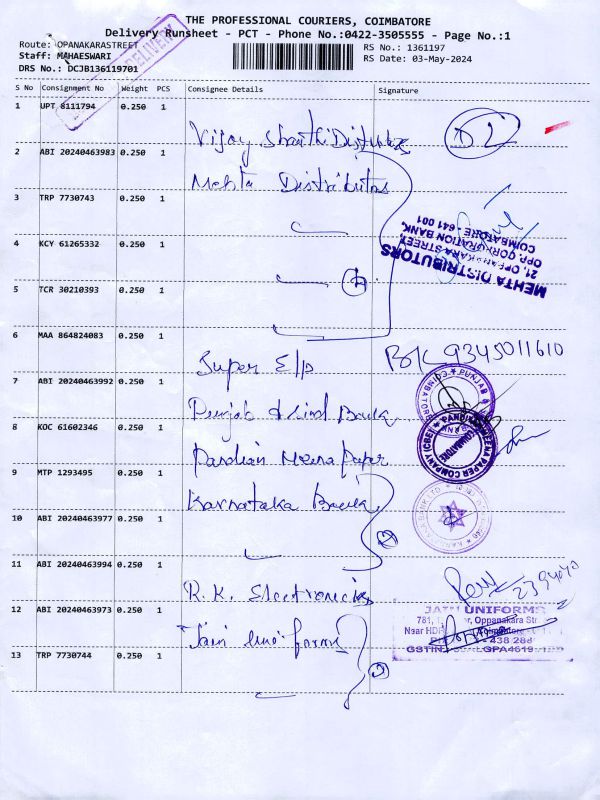 THE PROFESSIONAL COURIERS, COIMBATORE
Delivery Runsheet - PCT - Phone No.:0422-3505555 - Page No.:1
Route: OPANAKARASTREET
RS No.: 1361197
Staff: MAHAESWARI
RS Date: 03-May-2024
DRS No.: DCJB136119701
DELIVERY
S No Consignment No Weight PCS Consignee Details Signature
1 UPT 8111794 0.250 1 Vijay Shanthi Distributors
2 ABI 20240463983 0.250 1 Mehta Distributors
3 TRP 7730743 0.250 1
MEHTA DISTRIBUTORS
21, OPPANAKARA STREET,
OPP. CORPORATION BANK,
COIMBATORE - 641 001
4 KCY 61265332 0.250 1
5 TCR 30210393 0.250 1
6 MAA 864824083 0.250 1 Super E/p 9345011610
7 ABI 20240463992 0.250 1 Punjab & Sind Bank
8 KOC 61602346 0.250 1 Pandian Meena Paper
PANDIAN MEENA PAPER COMPANY (CBE)
COIMBATORE
9 MTP 1293495 0.250 1 Karnataka Bank
10 ABI 20240463977 0.250 1
11 ABI 20240463994 0.250 1 R.K. Electronics
12 ABI 20240463973 0.250 1 Jain Uniforms
JAIN UNIFORMS
Oppanakara Str
13 TRP 7730744 0.250 1